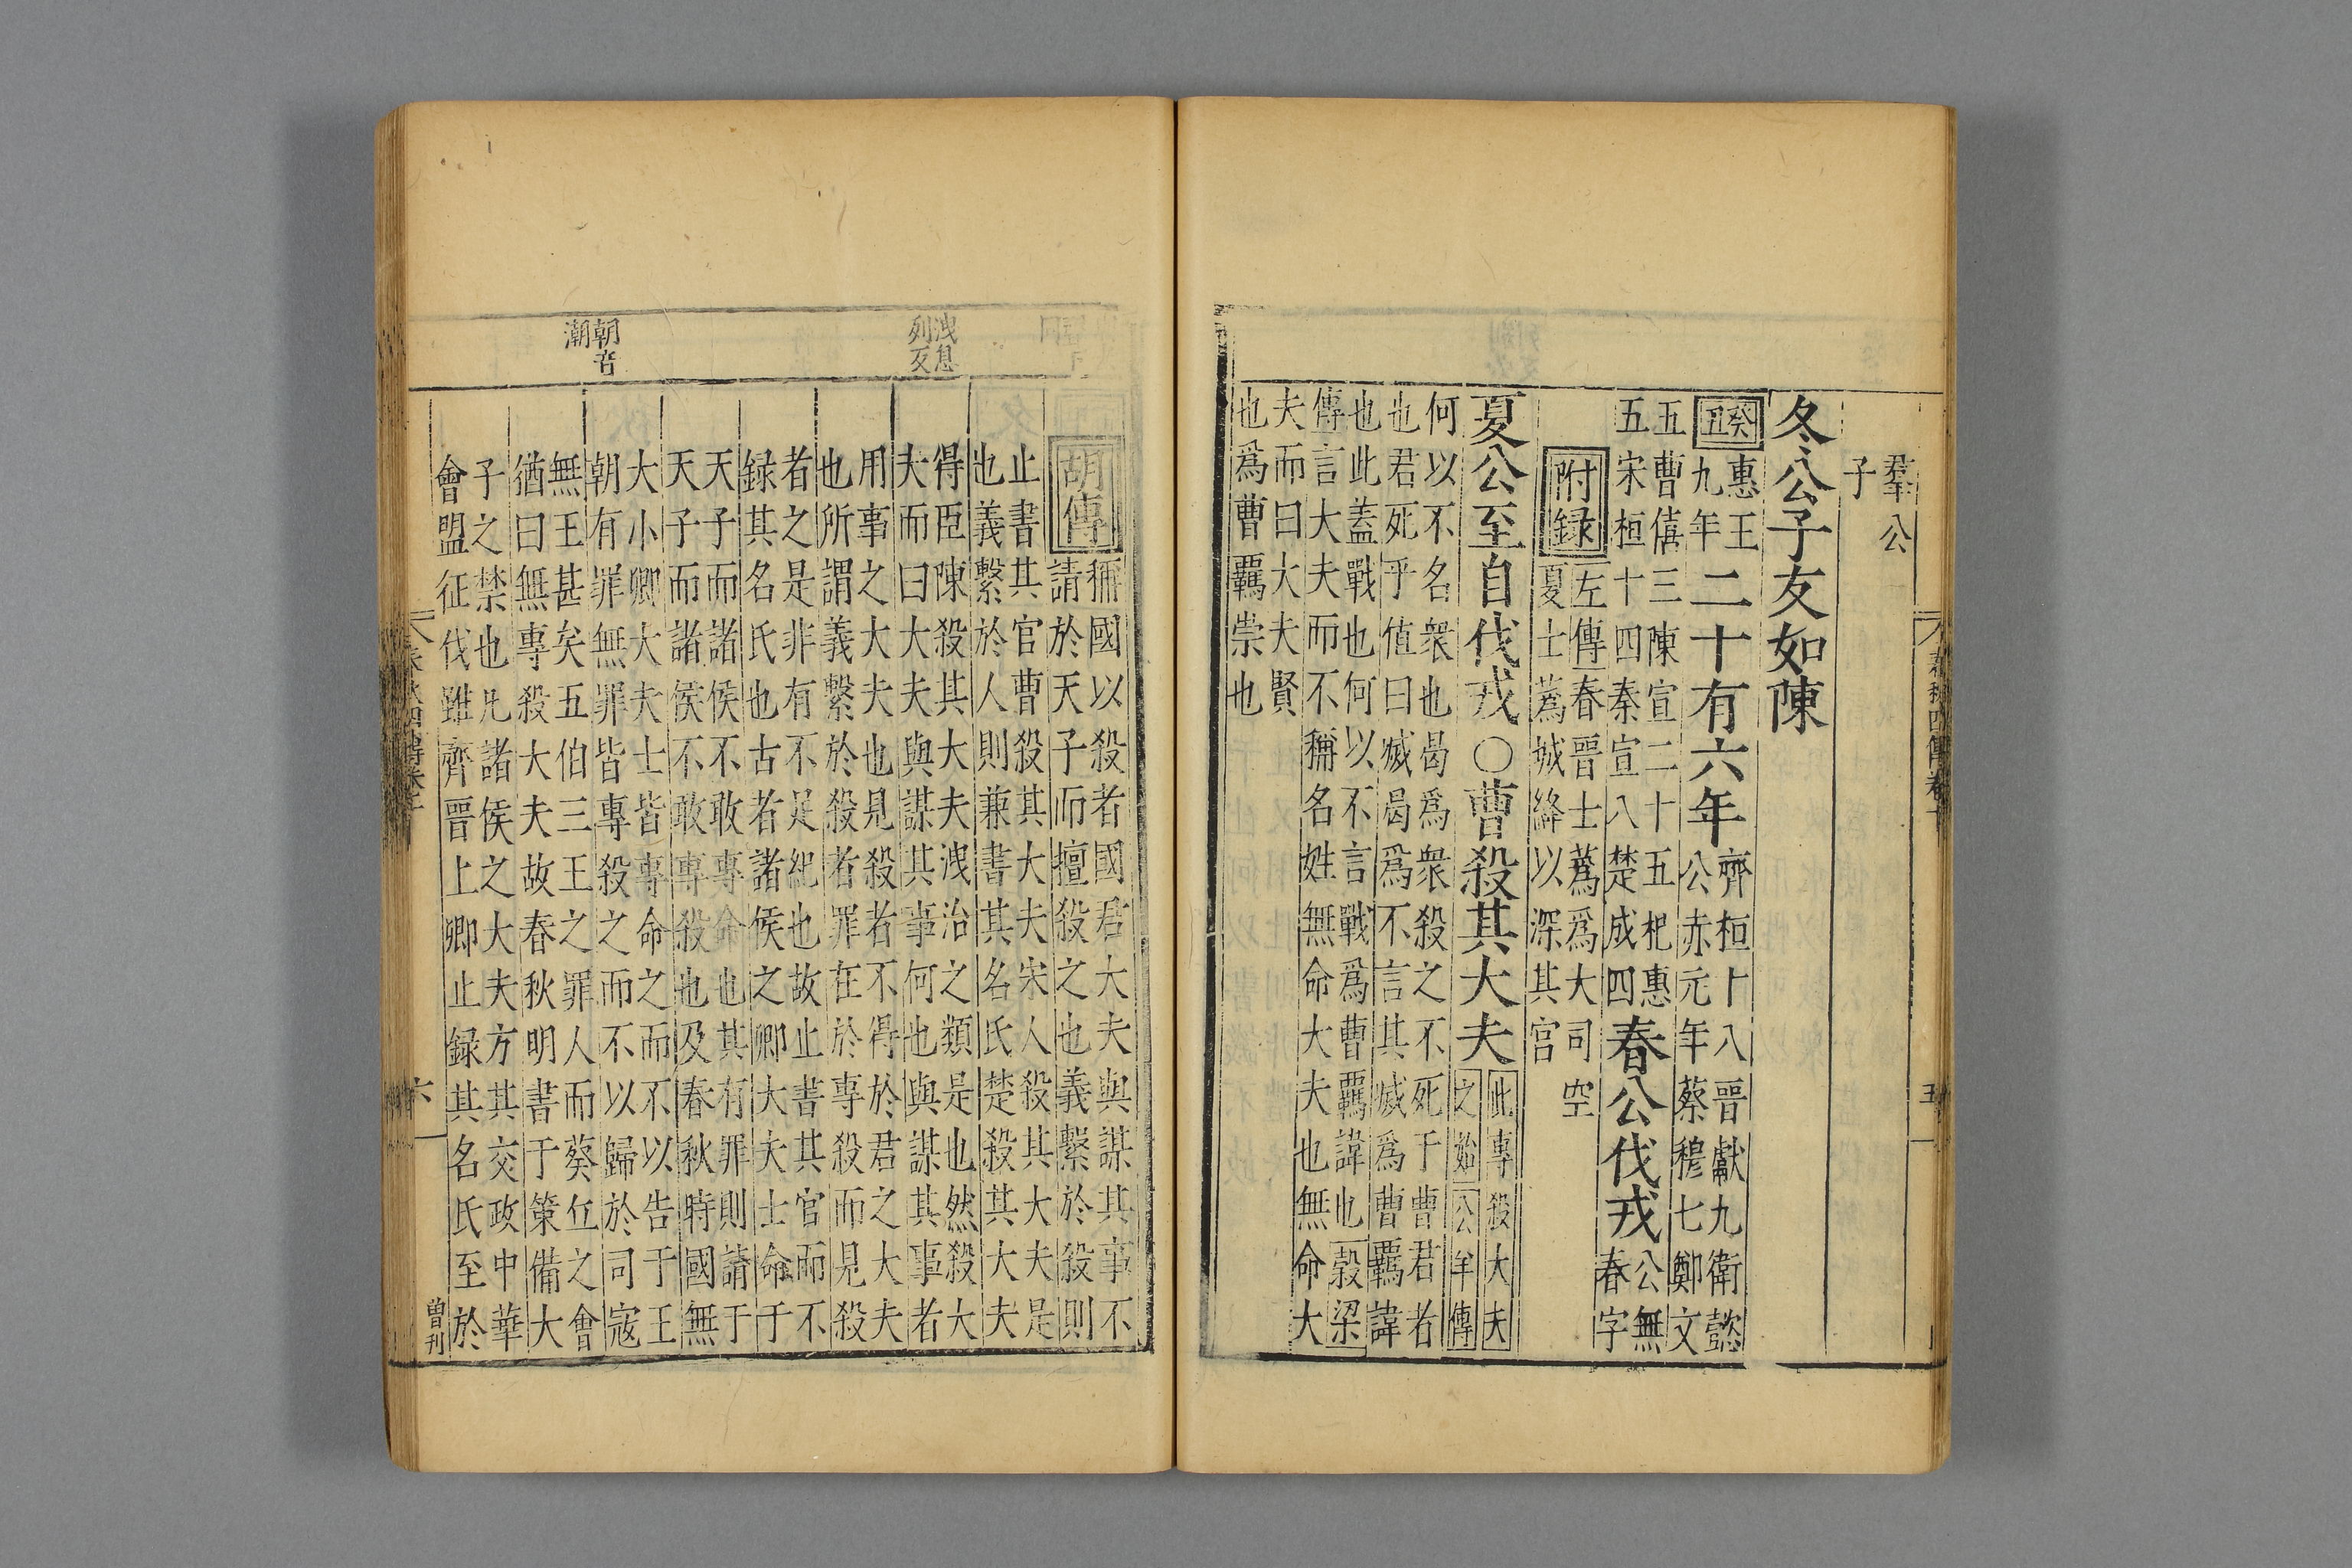 羣公
子
冬公子友如陳
癸丑
惠王
九年
二十有六年
齊桓十八晉獻九衛懿
公赤元年蔡穆七鄭文
五曹僖三陳宣二十五杞惠
五宋桓十四秦宣八楚成四
春公伐戎
公無
春字
附録
左傳春晉士蒍爲大司空
夏士蒍城絳以深其宮
夏公至自伐戎○曹殺其大夫
此專殺大夫
之始公羊傳
何以不名衆也曷爲衆殺之不死于曹君者
也君死乎位曰滅曷爲不言其滅爲曹羈諱
也此蓋戰也何以不言戰爲曹羈諱也穀梁
傳言大夫而不稱名姓無命大夫也無命大
夫而曰大夫賢
也爲曹羈崇也
春秋四傳卷十
五
洩息
列反
朝音
潮
胡傳
稱國以殺者國君大夫與謀其事不
請於天子而擅殺之也義繫於殺則
止書其官曹殺其大夫宋人殺其大夫是
也義繫於人則兼書其名氏楚殺其大夫
得臣陳殺其大夫洩治之類是也然殺大
夫而曰大夫與謀其事何也與謀其事者
用事之大夫也見殺者不得於君之大夫
也所謂義繫於殺者罪在於專殺而見殺
者之是非有不足紀也故止書其官而不
録其名氏也古者諸侯之卿大夫士命于
天子而諸侯不敢專命也其有罪則請于
天子而諸侯不敢專殺也及春秋時國無
大小卿大夫士皆專命之而不以告于王
朝有罪無罪皆專殺之而不以歸於司寇
無王甚矣五伯三王之罪人而葵丘之會
猶曰無專殺大夫故春秋明書于策備大
子之禁也凡諸侯之大夫方其交政中華
會盟征伐雖齊晋上卿止録其名氏至於
六
曽刊